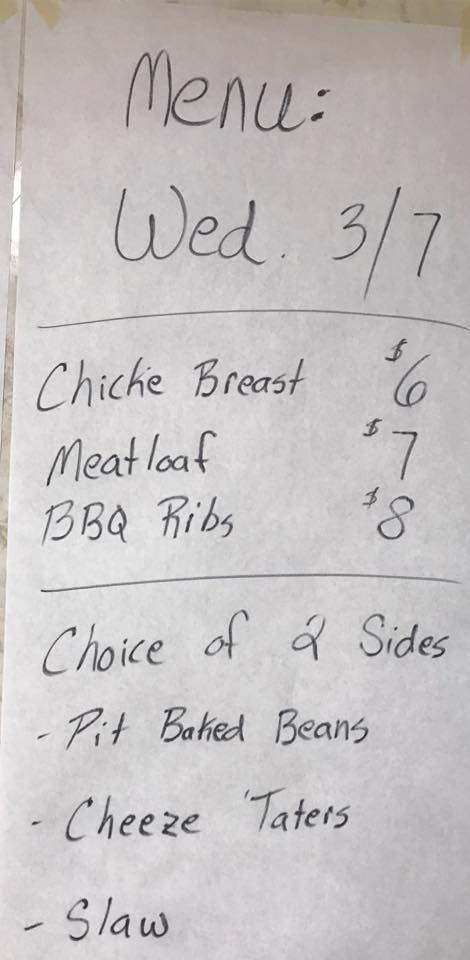 Menu:
Wed. 3/7
Chicke Breast $6
Meatloaf $7
BBQ Ribs $8
Choice of 2 Sides
- Pit Baked Beans
- Cheeze 'Taters
- Slaw